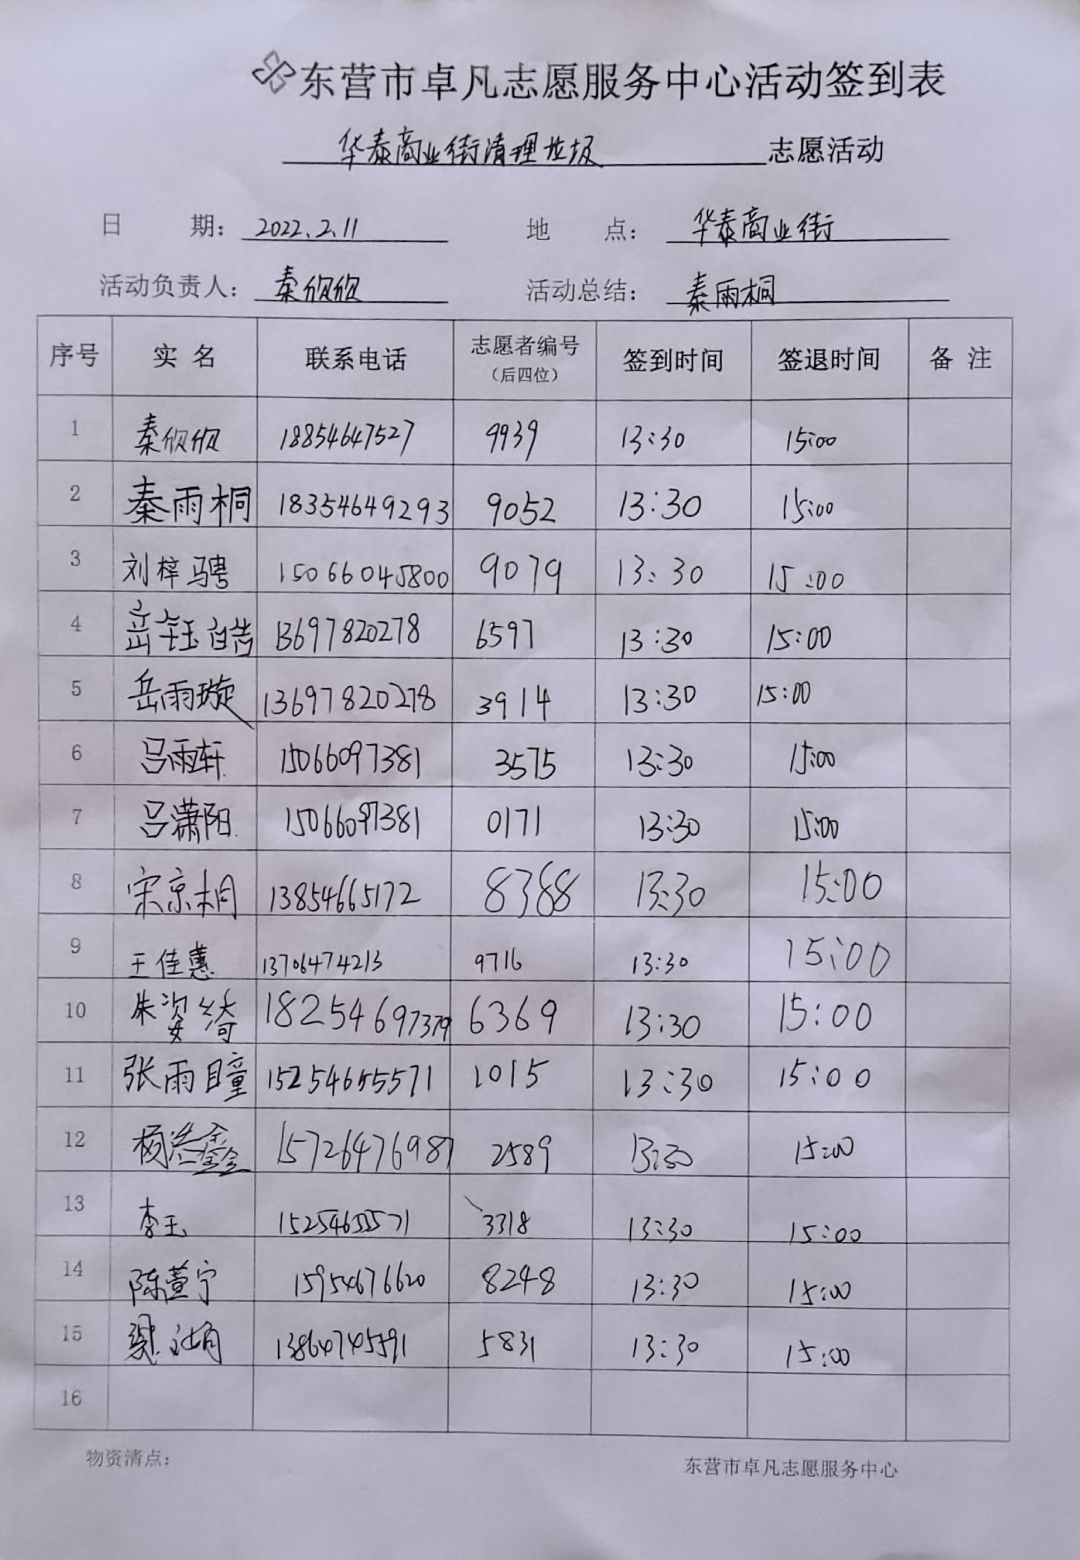 东营市卓凡志愿服务中心活动签到表
华泰商业街清理垃圾 志愿活动
日 期: 2022.2.11 地 点: 华泰商业街
活动负责人: 秦欣欣 活动总结: 秦雨桐
序号 实 名 联系电话 志愿者编号 (后四位) 签到时间 签退时间 备 注
1 秦欣欣 18854647527 9939 13:30 15:00
2 秦雨桐 18354649293 9052 13:30 15:00
3 刘梓骋 15066045800 9079 13:30 15:00
4 13697820278 6597 13:30 15:00
5 岳雨璇 13697820278 3914 13:30 15:00
6 吕雨轩 15066097381 3575 13:30 15:00
7 吕潇阳 15066097381 0171 13:30 15:00
8 宋京桐 13854665172 8368 13:30 15:00
9 王佳蕙 13706474213 9716 13:30 15:00
10 朱姿绮 18254697379 6369 13:30 15:00
11 张雨瞳 15254655571 1015 13:30 15:00
12 杨浩鑫 15726476987 2589 13:30 15:00
13 李玉 15254655571 3318 13:30 15:00
14 陈萱宁 15954676620 8248 13:30 15:00
15 13864745591 5831 13:30 15:00
16
物资清点: 东营市卓凡志愿服务中心